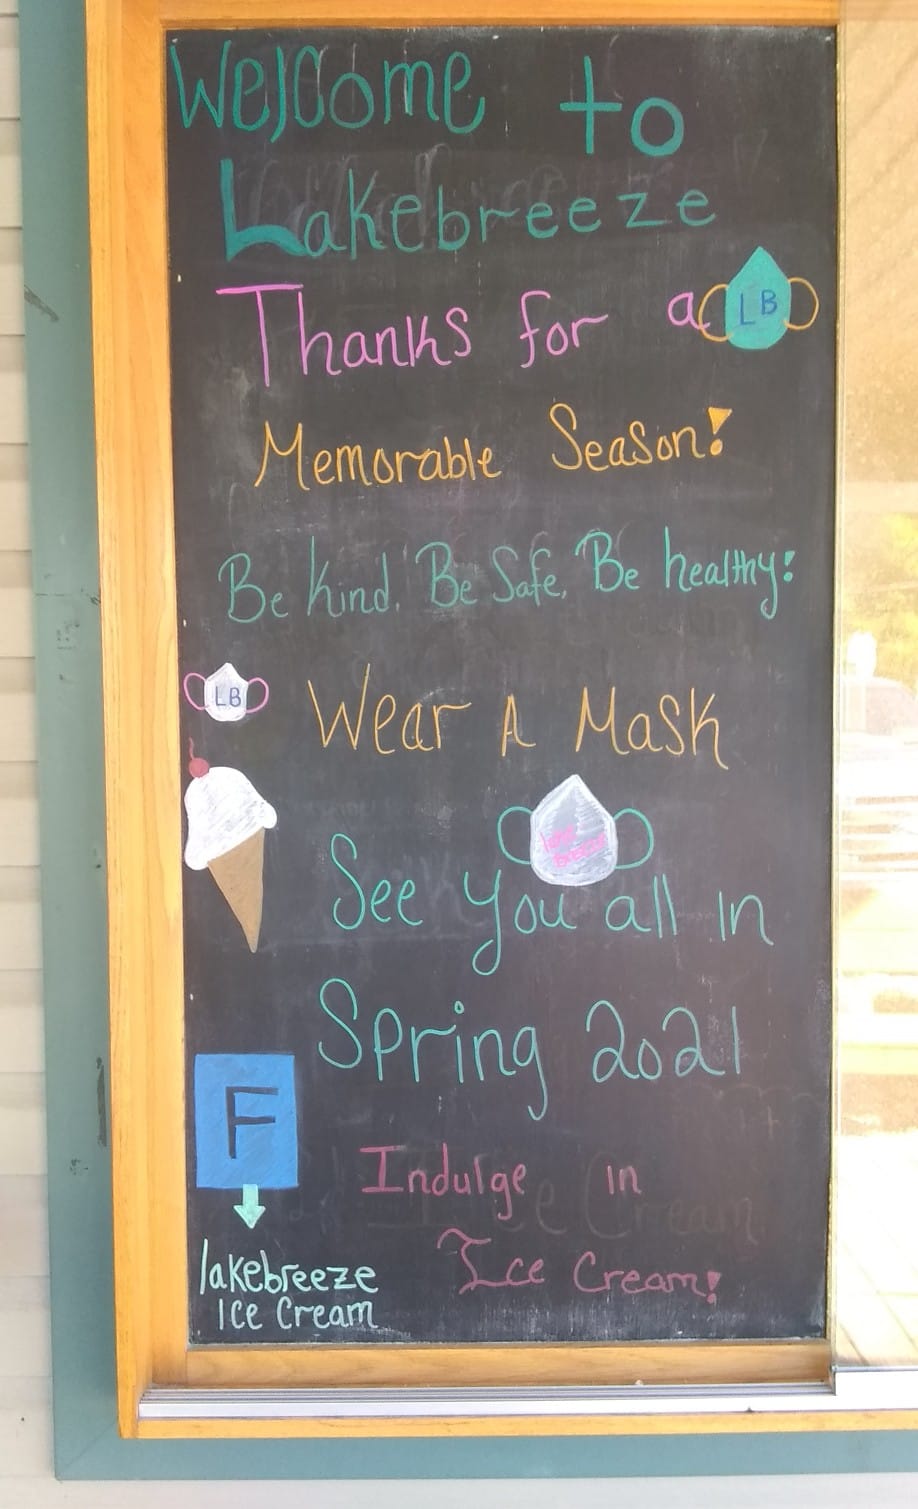 Welcome to
Lakebreeze
Thanks for a
LB
Memorable Season!
Be Kind. Be Safe. Be healthy!
LB
Wear A Mask
See you all in
Spring 2021
F
Indulge in
Ice Cream!
lakebreeze
Ice Cream